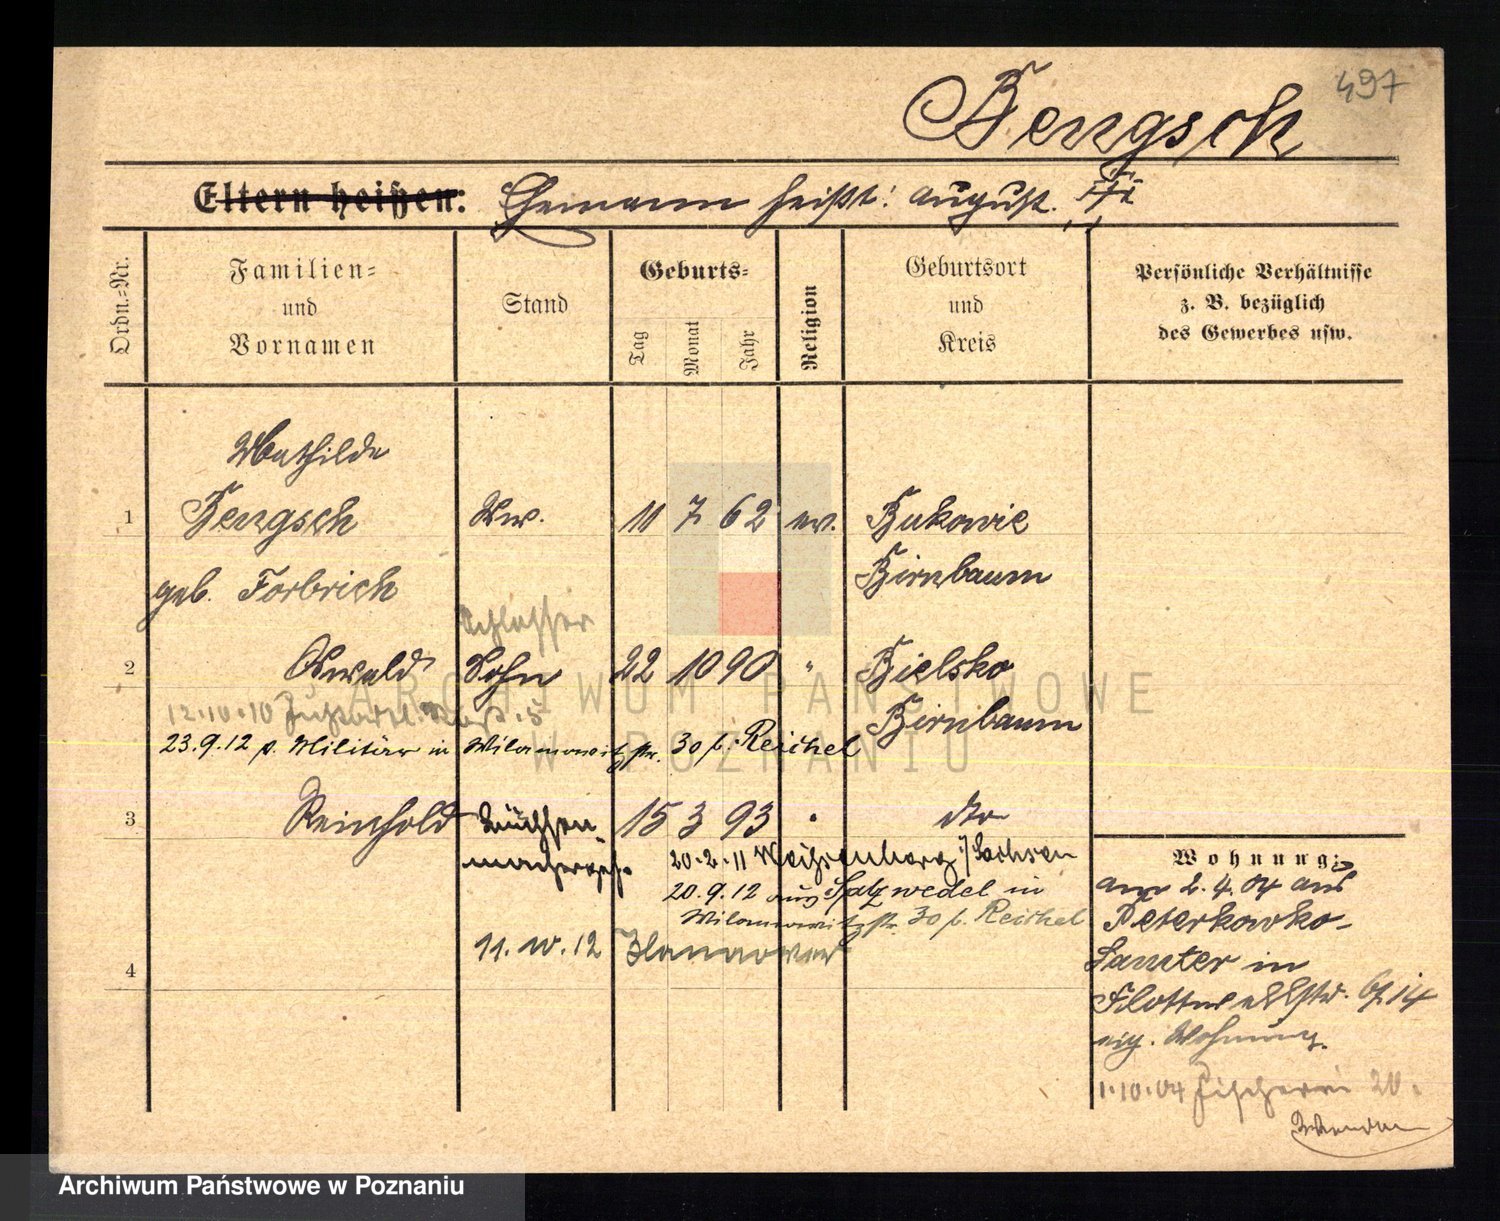 497
Bengsch
Eltern heißen: Ehemann heißt: August.
Ordn.-Nr.
Familien-
und
Vornamen
Stand
Geburts-
Tag
Monat
Jahr
Religion
Geburtsort
und
Kreis
Persönliche Verhältnisse
z. B. bezüglich
des Gewerbes usw.
Mathilde
1 Bengsch Ww. 11 7 62 ev. Bukowie
geb. Forbrich Birnbaum
Schlosser
2 Oswald Sohn 22 10 90 " Bielsko
Birnbaum
12.10.10
23.9.12 v. Militär in Wilamowitzstr. 30 b. Reichel
3 Reinhold Büchsen- 15 3 93 " dto
machergeh.
20.2.11 Sachsen
20.9.12 aus Salzwedel in
Wilamowitzstr. 30 b. Reichel
11.10.12 Hannover
4
Wohnung:
am 2.4.04 aus
Peterkowko-
Samter in
Flottwellstr.
eig. Wohnung.
1.10.04 Fischerei 20.
ARCHIWUM PAŃSTWOWE
W POZNANIU
Archiwum Państwowe w Poznaniu